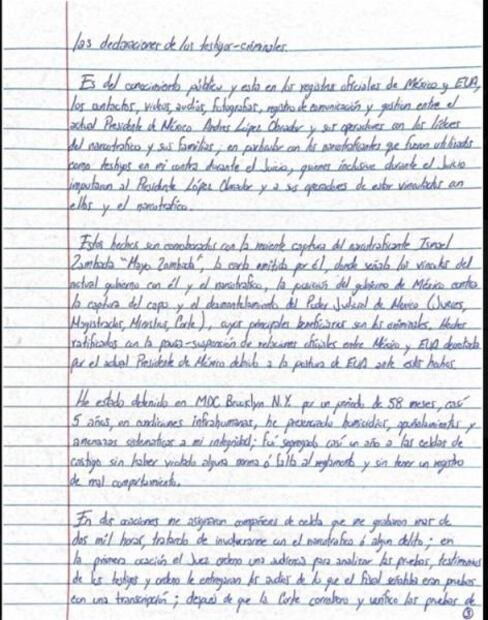 las declaraciones de los testigos-criminales.
Es del conocimiento público y esta en los registros oficiales de México y EUA,
los contactos, videos, audios, fotografias, registro de comunicación y gestion entre el
actual Presidente de México Andres López Obrador y sus operadores con los líderes
del narcotrafico y sus familias; en particular con los narcotraficantes que fueron utilizados
como testigos en mi contra durante el Juicio, quienes inclusive durante el Juicio
imputaron al Presidente López Obrador y a sus operadores de estar vinculados con
ellos y el narcotrafico.
Estos hechos son corroborados con la reciente captura del narcotraficante Ismael
Zambada "Mayo Zambada", la carta emitida por él, donde señala los vinculos del
actual gobierno con él y el narcotrafico, la posición del gobierno de México contra
la captura del capo y el desmantelamiento del Poder Judicial de Mexico (Jueces,
Magistrados, Ministros, Corte), cuyos principales beneficiarios son los criminales. Hechos
ratificados con la pausa-suspensión de relaciones oficiales entre México y EUA decretada
por el actual Presidente de México debido a la postura de EUA ante estos hechos.
He estado detenido en MDC Brooklyn N.Y. por un periodo de 58 meses, casi
5 años, en condiciones infrahumanas, he presenciado homicidios, apuñalamientos y
amenazas sistematicas a mi integridad; fui segregado casi un año a las celdas de
castigo sin haber violado alguna norma ó falta al reglamento y sin tener un registro
de mal comportamiento.
En dos ocaciones me asignaron compañeros de celda que me grabaron mas de
dos mil horas, tratando de involucrarme con el narcotrafico ó algun delito; en
la primera ocación el Juez ordeno una audiencia para analizar las pruebas, testimonios
de los testigos y ordeno le entregaran los audios de lo que el fiscal señalaba eran pruebas
con una transcripción; despues de que la Corte corroboro y verifico las pruebas de